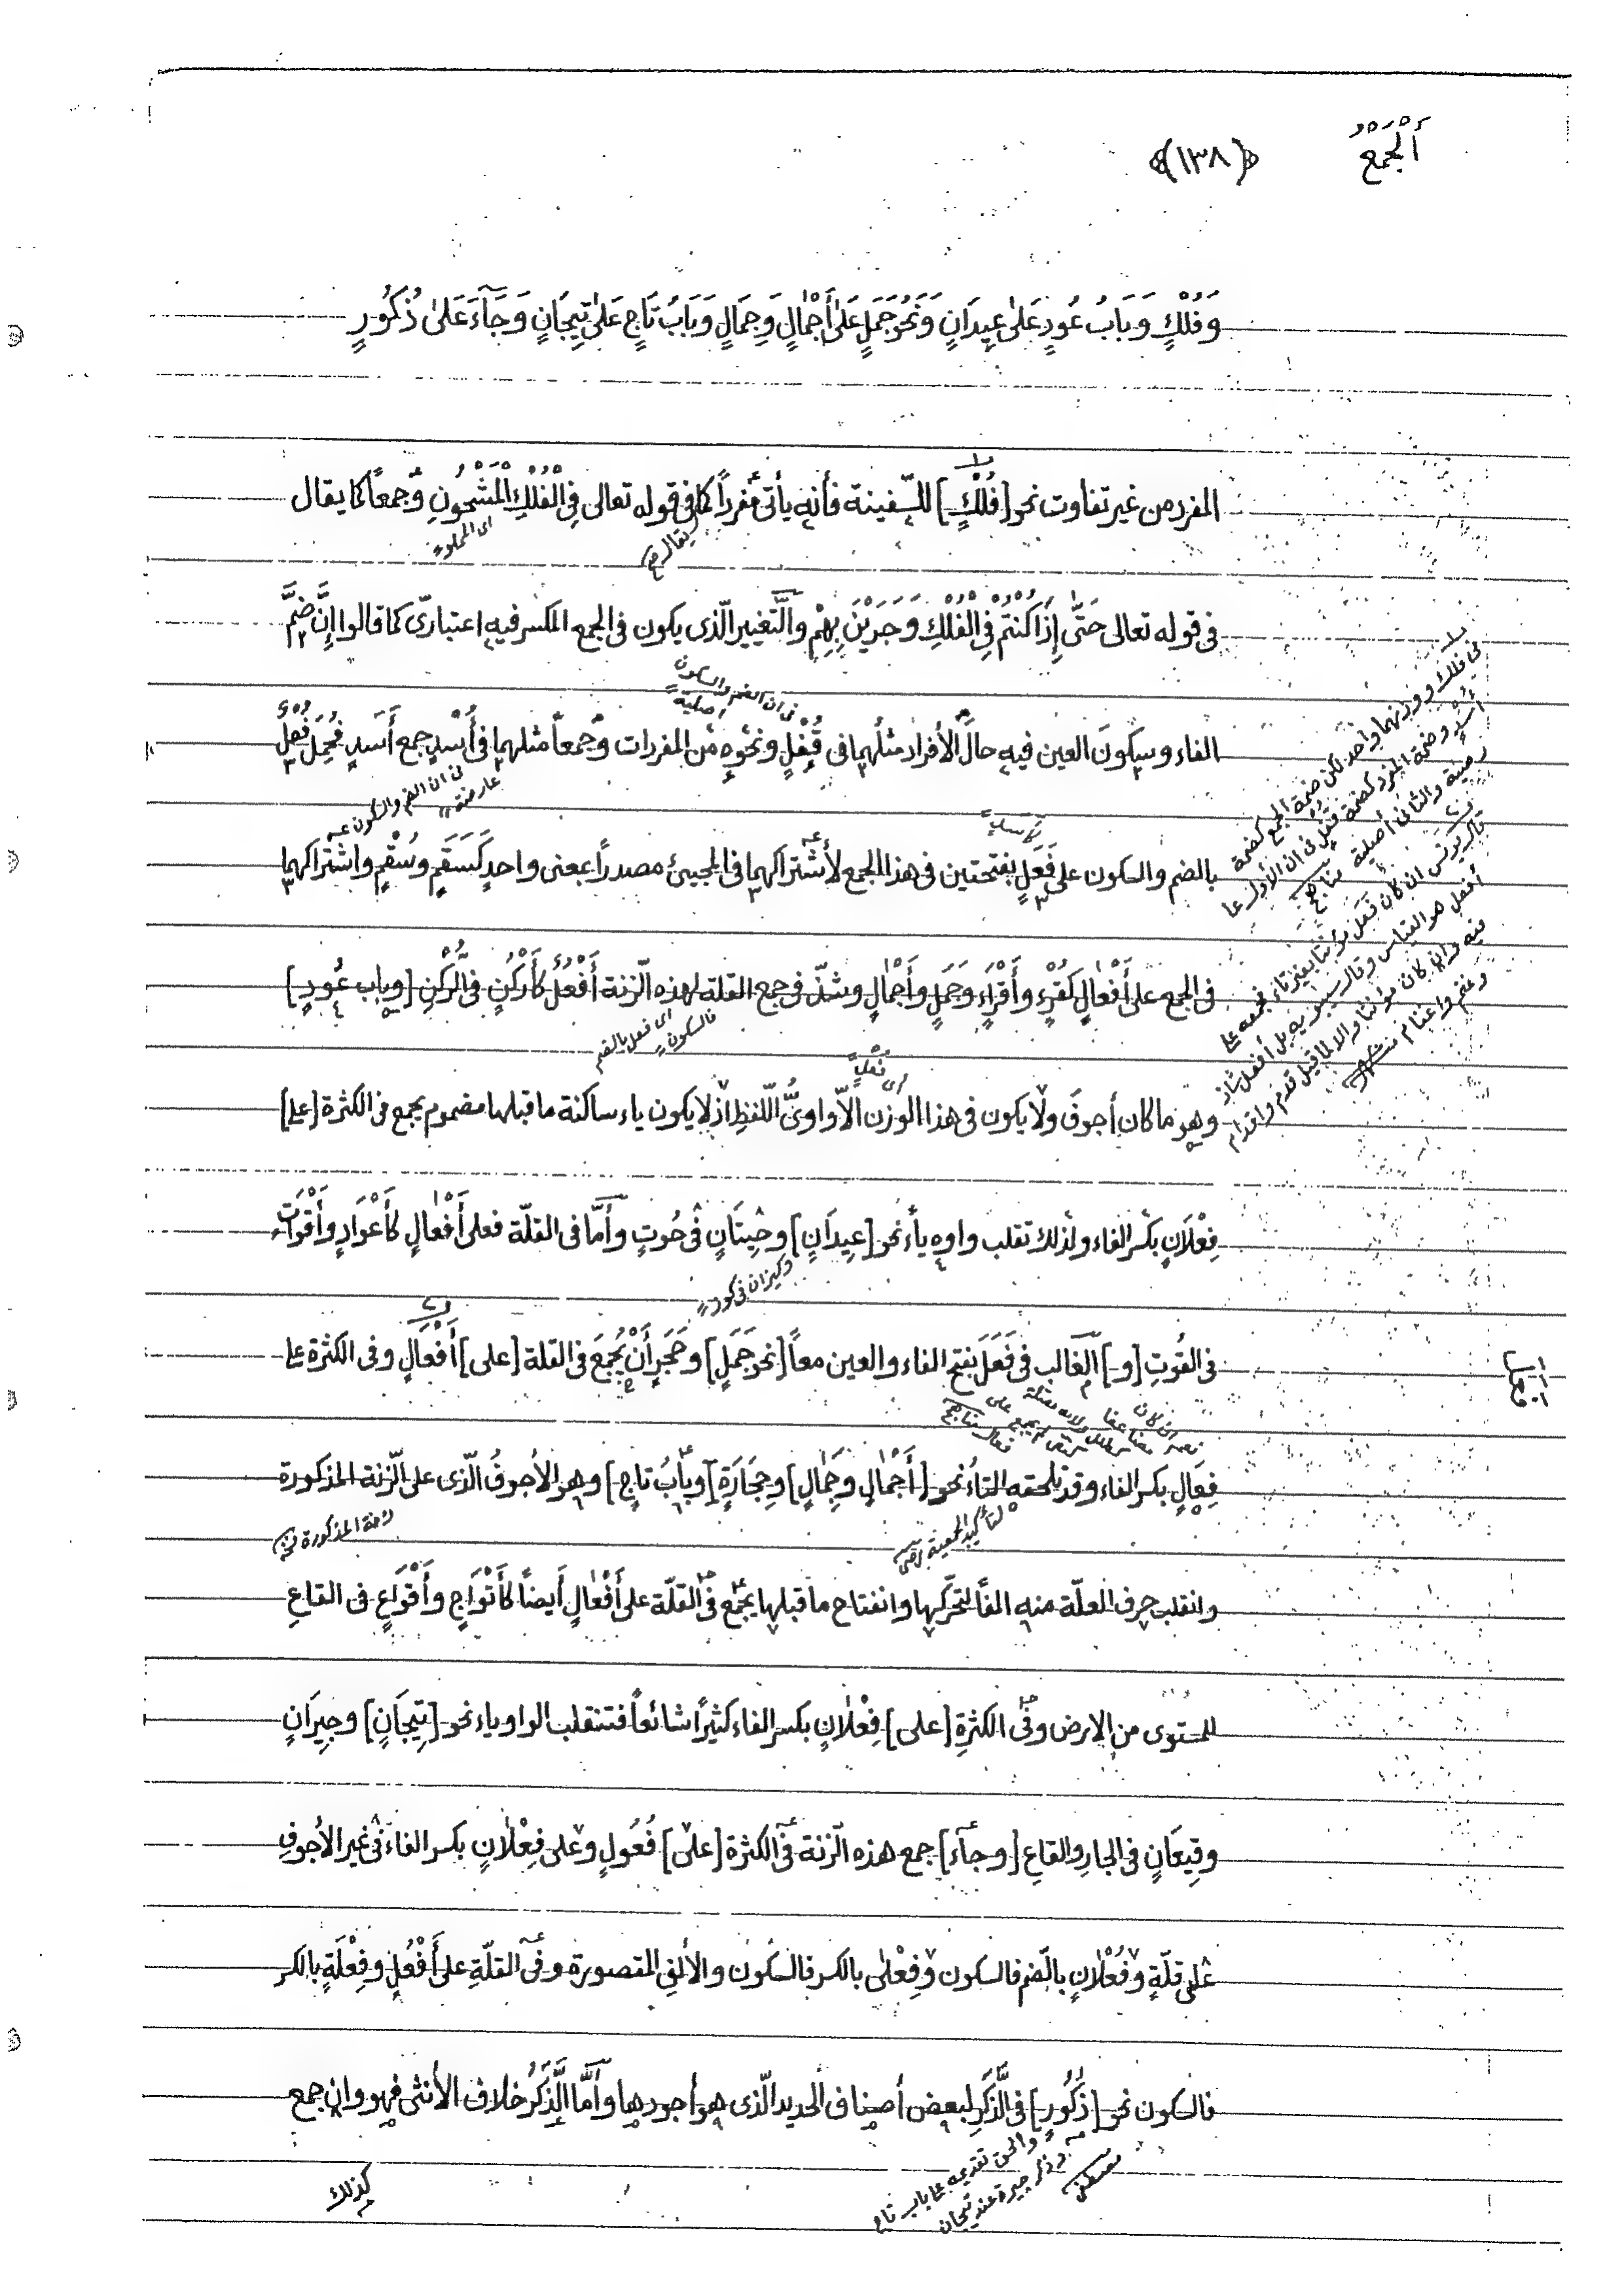 اَلْجَمْعُ
﴿١٣٨﴾
وَفُلْكٍ وَبَابُ عُودٍ عَلىٰ عِيدَانٍ وَنَحْوُ جَمَلٍ عَلىٰ أَجْمٰالٍ وَجِمَالٍ وَبَابُ تَاجٍ عَلىٰ تِيجَانٍ وَجَآءَ عَلىٰ ذُكُورٍ
المفرد من غير تفاوت نحو [فُلْكٍ] للسّفينة فأنه يأتى مفرداً كما فى قوله تعالى فِى الْفُلْكِ الْمَشْحُونِ وجمعاً كما يقال
اى المملوء
فى قوله تعالى حَتّٰى إِذَا كُنْتُمْ فِى الْفُلْكِ وَجَرَيْنَ بِهِمْ والتّغيير الّذى يكون فى الجمع المكسر فيه اعتبارىّ كما قالوا إنّ ضمّ
فى ان الضم والسكون
اصلية
الفاء وسكونَ العين فيه حالَ الأفراد مثلُهما فى قُفْلٍ ونحوِه من المفردات وجمعاً مثلهما فى أُسْدٍ جمع أَسَدٍ فحُمِل فُعْلٌ
فى ان الضم والسكون
عارضة
بالضم والسكون على فَعَلٍ بفتحتين فى هذا الجمع لأشتراكهما فى المجيئ مصدراً بمعنى واحدٍ كَسَقَمٍ وسُقْمٍ واشتراكهما
كأسد
فى الجمع على أَفْعٰالٍ كَقُرْءٍ وأَقْرٰاءٍ وَجَمَلٍ وأَجْمٰالٍ وشذّ فى جمع القلة لهذه الزّنة أَفْعُلٌ كأَرْكُنٍ فى الرُّكْنِ [وباب عُودٍ]
اى فعل بالضم
فالسكون
اى فعل
وهو ما كان أجوفَ ولا يكون فى هذا الوزن الاّ واوىَّ اللّفظِ اذ لا يكون ياء ساكنة ما قبلها مضموم يجمع فى الكثرة [على]
فِعْلَانٍ بكسر الفاء ولذلك تقلب واوه ياءً نحو [عِيدَانٍ] وحِيتَانٍ فى حُوتٍ وأَمّا فى القلّة فعلى أَفْعٰالٍ كأَعْوَادٍ وأَقْوَاتٍ
وكيزان فى كوز
فى القُوتِ [و] الغالب فى فَعَلٍ بفتح الفاء والعين معاً [نحو جَمَلٍ] وحَجَرٍ أَنْ يُجْمَعَ فى القلة [على] أَفْعَالٍ وفى الكثرة على
فِعَالٍ بكسر الفاء وقد تلحقه التاءُ نحو [أَجْمٰالٍ وجِمٰالٍ] وحِجَارَةٍ [وبابُ تاجٍ] وهو الأجوفُ الّذى على الزّنة المذكورة
لتأكيد الجمعية
وانقلب حرف العلّة منه الفاً لتحرّكها وانفتاح ما قبلها يجمع فى القلّة على أَفْعٰالٍ أيضاً كأَتْوَاجٍ وأَقْوَاعٍ فى القاعِ
للمستوى من الارض وفى الكثرةِ [على] فِعْلٰانٍ بكسر الفاء كثيراً شائعاً فتنقلب الواو ياء نحو [تِيجَانٍ] وجِيرَانٍ
وقِيعَانٍ فى الجارِ والقاعِ [وجآء] جمع هذه الزّنة فى الكثرة [على] فُعُولٍ وعلى فِعْلٰانٍ بكسر الفاء فى غير الأجوفِ
على قلّةٍ وفُعْلٰانٍ بالضّم فالسكون وفِعْلى بالكسر فالسكون والألفِ المقصورة وفى القلّةِ على أَفْعُلٍ وفِعْلَةٍ بالكسر
فالسكون نحو [ذُكُورٍ] فى الذَّكَرِ لبعض أصناف الحديد الّذى هو أجودها وأمّا الذَّكَرُ خلاف الأنثى فهو وان جمع
والحق تقديمه على باب تاج
وذكر جيرة عند تيجان
مصطفى
كذلك
فى فلك ووزنهما واحد لكن ضمة الجمع كضمة
أُسْدٍ وضمة المفرد كضمة قُفْلٍ فى ان الأول عا
رضية والثانى أصلية
قال يونس ان كان فعل مؤنثا بغير تاء فجمعه على
أفعل هو القياس وقال سيبويه بل أفعل شاذ
فيه وان كان مؤنثا والا لما قيل قدم واقدام
وغنم واغنام